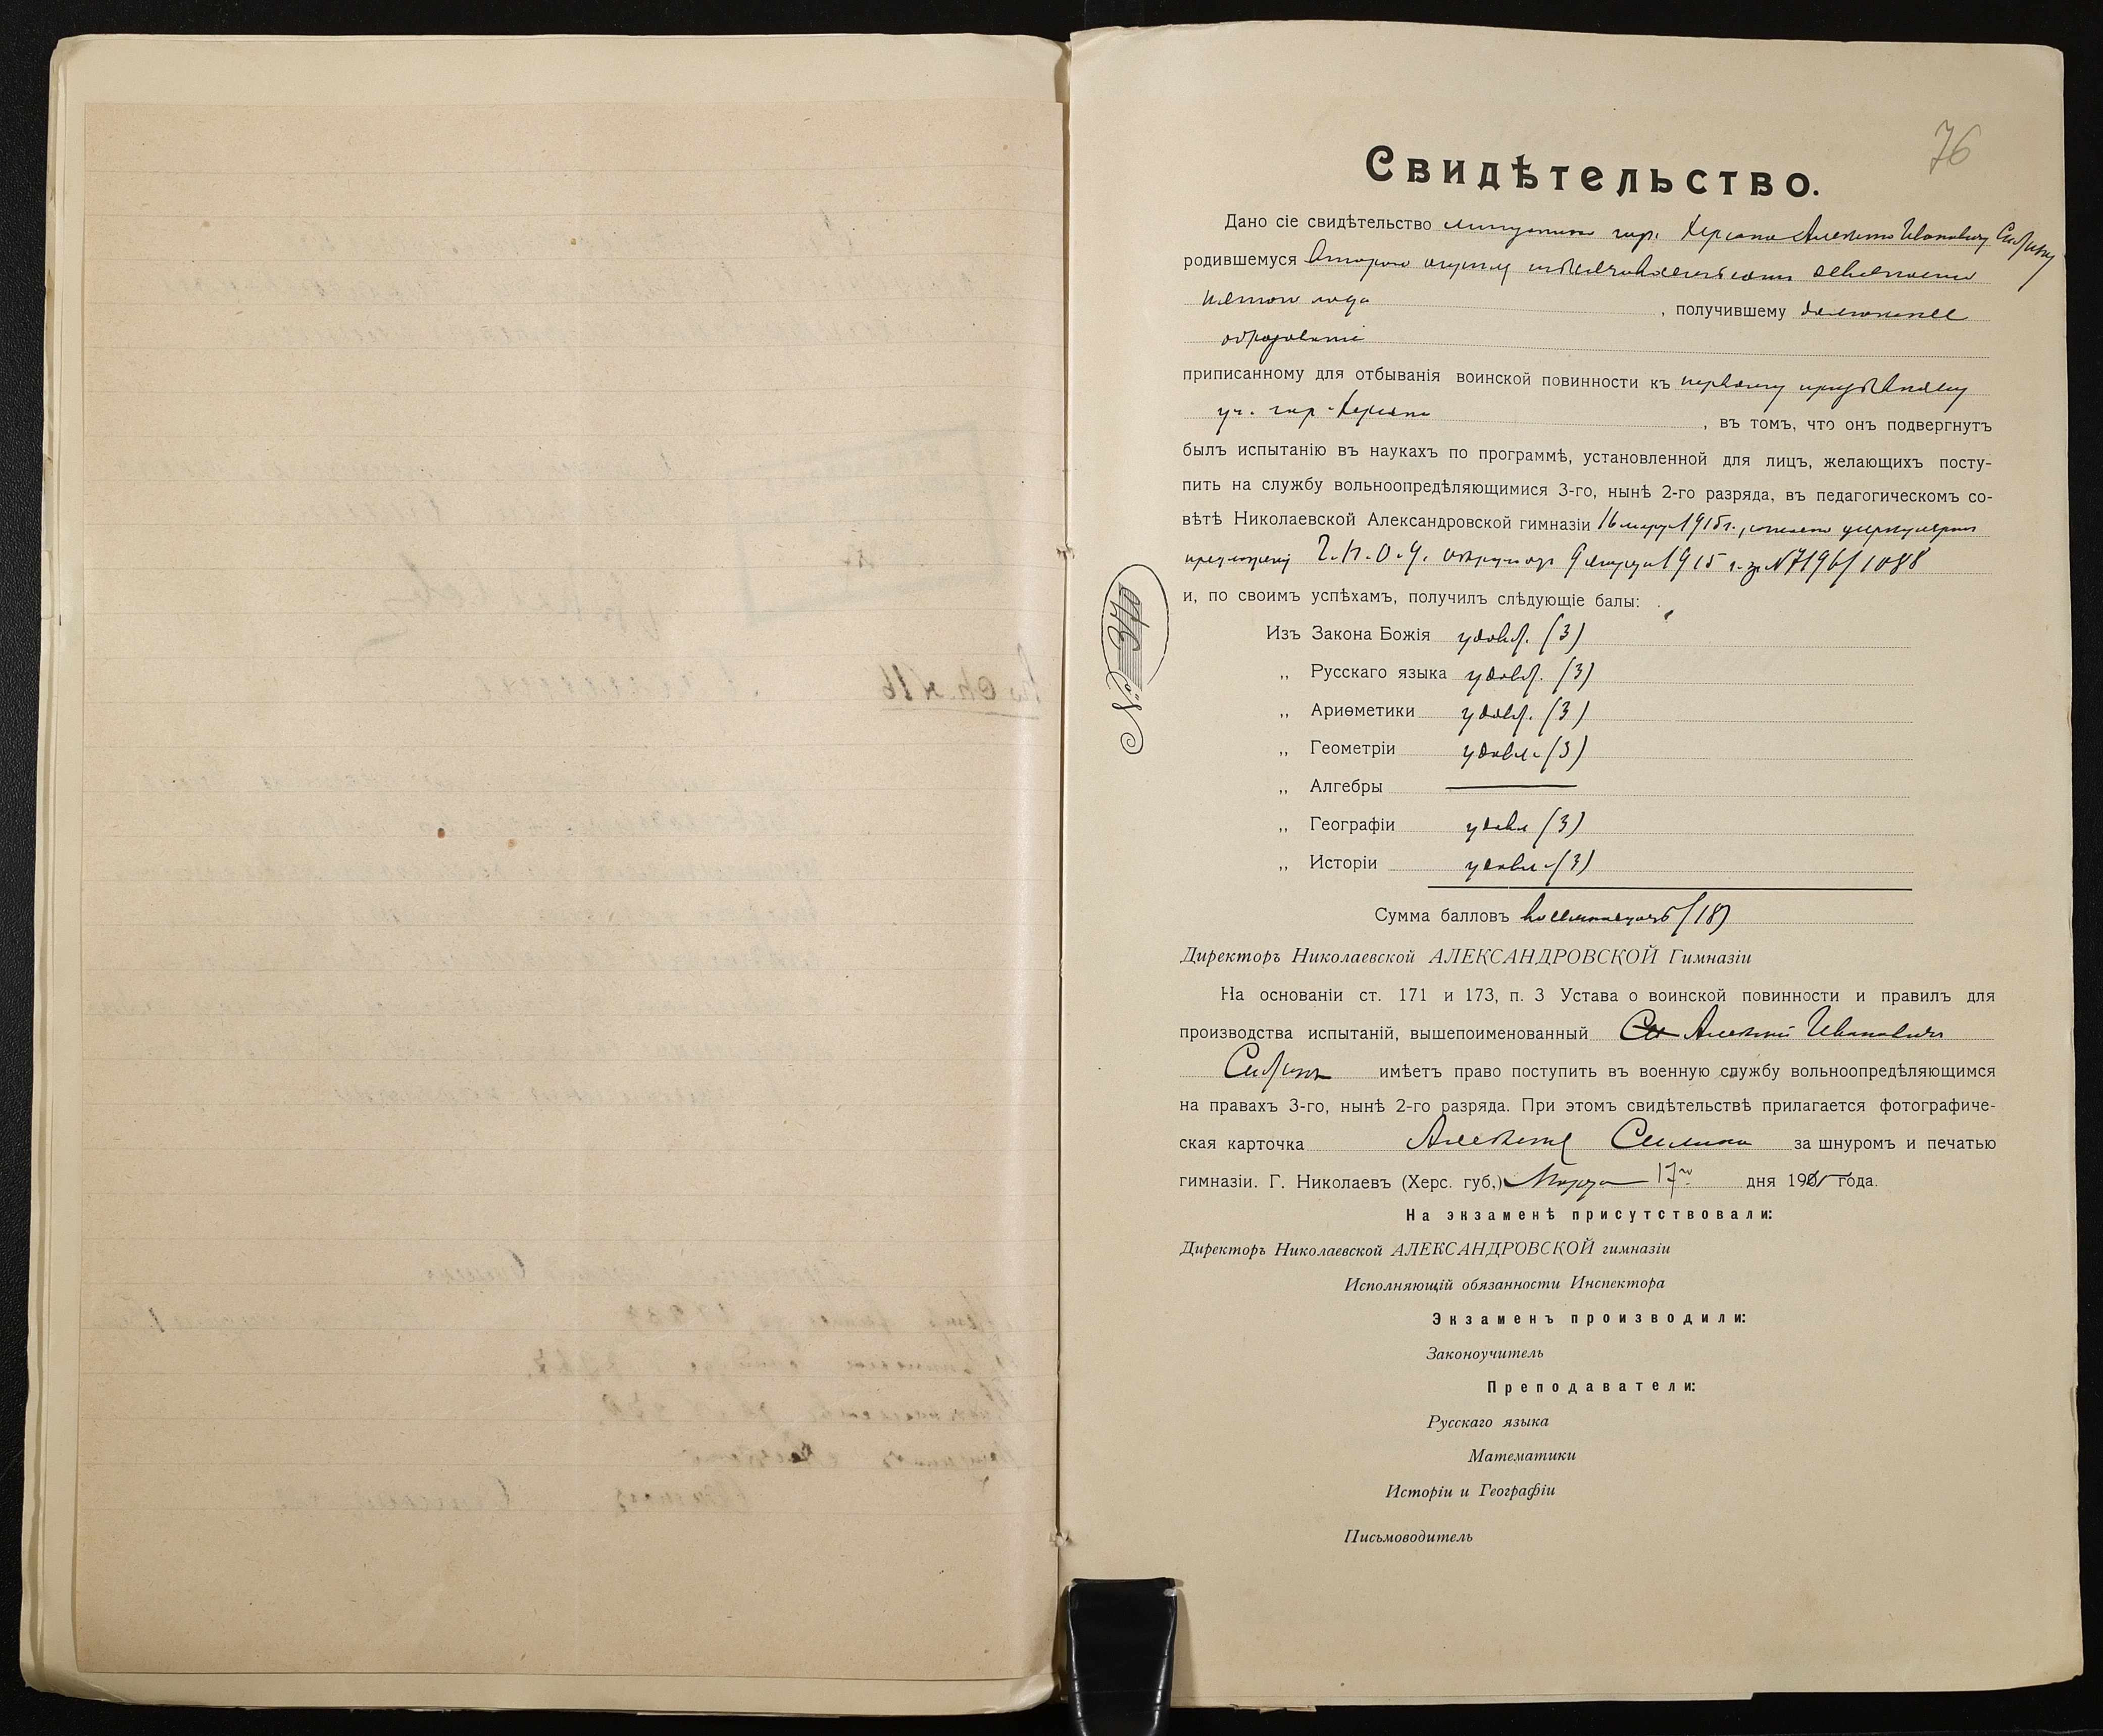 76
Свидѣтельство.
Дано сіе свидѣтельство мѣщанину гор. Херсона Алексѣю Ивановичу
родившемуся второго тысяча восемьсотъ девяносто
пятаго года , получившему домашнее
образованіе
приписанному для отбыванія воинской повинности къ первому призывному
уч. гор. Херсона , въ томъ, что онъ подвергнутъ
былъ испытанію въ наукахъ по программѣ, установленной для лицъ, желающихъ посту-
пить на службу вольноопредѣляющимися 3-го, нынѣ 2-го разряда, въ педагогическомъ со-
вѣтѣ Николаевской Александровской гимназіи 16 марта 1915 г., согласно циркулярному
предложенію Г. П. О. У. округа отъ 9 1915 г. за № 7196/1088
и, по своимъ успѣхамъ, получилъ слѣдующіе балы:
Изъ Закона Божія удовл. (3)
„ Русскаго языка удовл. (3)
„ Ариѳметики удовл. (3)
„ Геометріи удовл. (3)
„ Алгебры —
„ Географіи удовл (3)
„ Исторіи удовл. (3)
Сумма балловъ восемнадцать (18)
Директоръ Николаевской АЛЕКСАНДРОВСКОЙ Гимназіи
На основаніи ст. 171 и 173, п. 3 Устава о воинской повинности и правилъ для
производства испытаній, вышепоименованный Алексѣй Ивановичъ
имѣетъ право поступить въ военную службу вольноопредѣляющимся
на правахъ 3-го, нынѣ 2-го разряда. При этомъ свидѣтельствѣ прилагается фотографиче-
ская карточка Алексѣя за шнуромъ и печатью
гимназіи. Г. Николаевъ (Херс. губ.) Марта 17го дня 1915 года.
На экзаменѣ присутствовали:
Директоръ Николаевской АЛЕКСАНДРОВСКОЙ гимназіи
Исполняющій обязанности Инспектора
Экзаменъ производили:
Законоучитель
Преподаватели:
Русскаго языка
Математики
Исторіи и Географіи
Письмоводитель
№